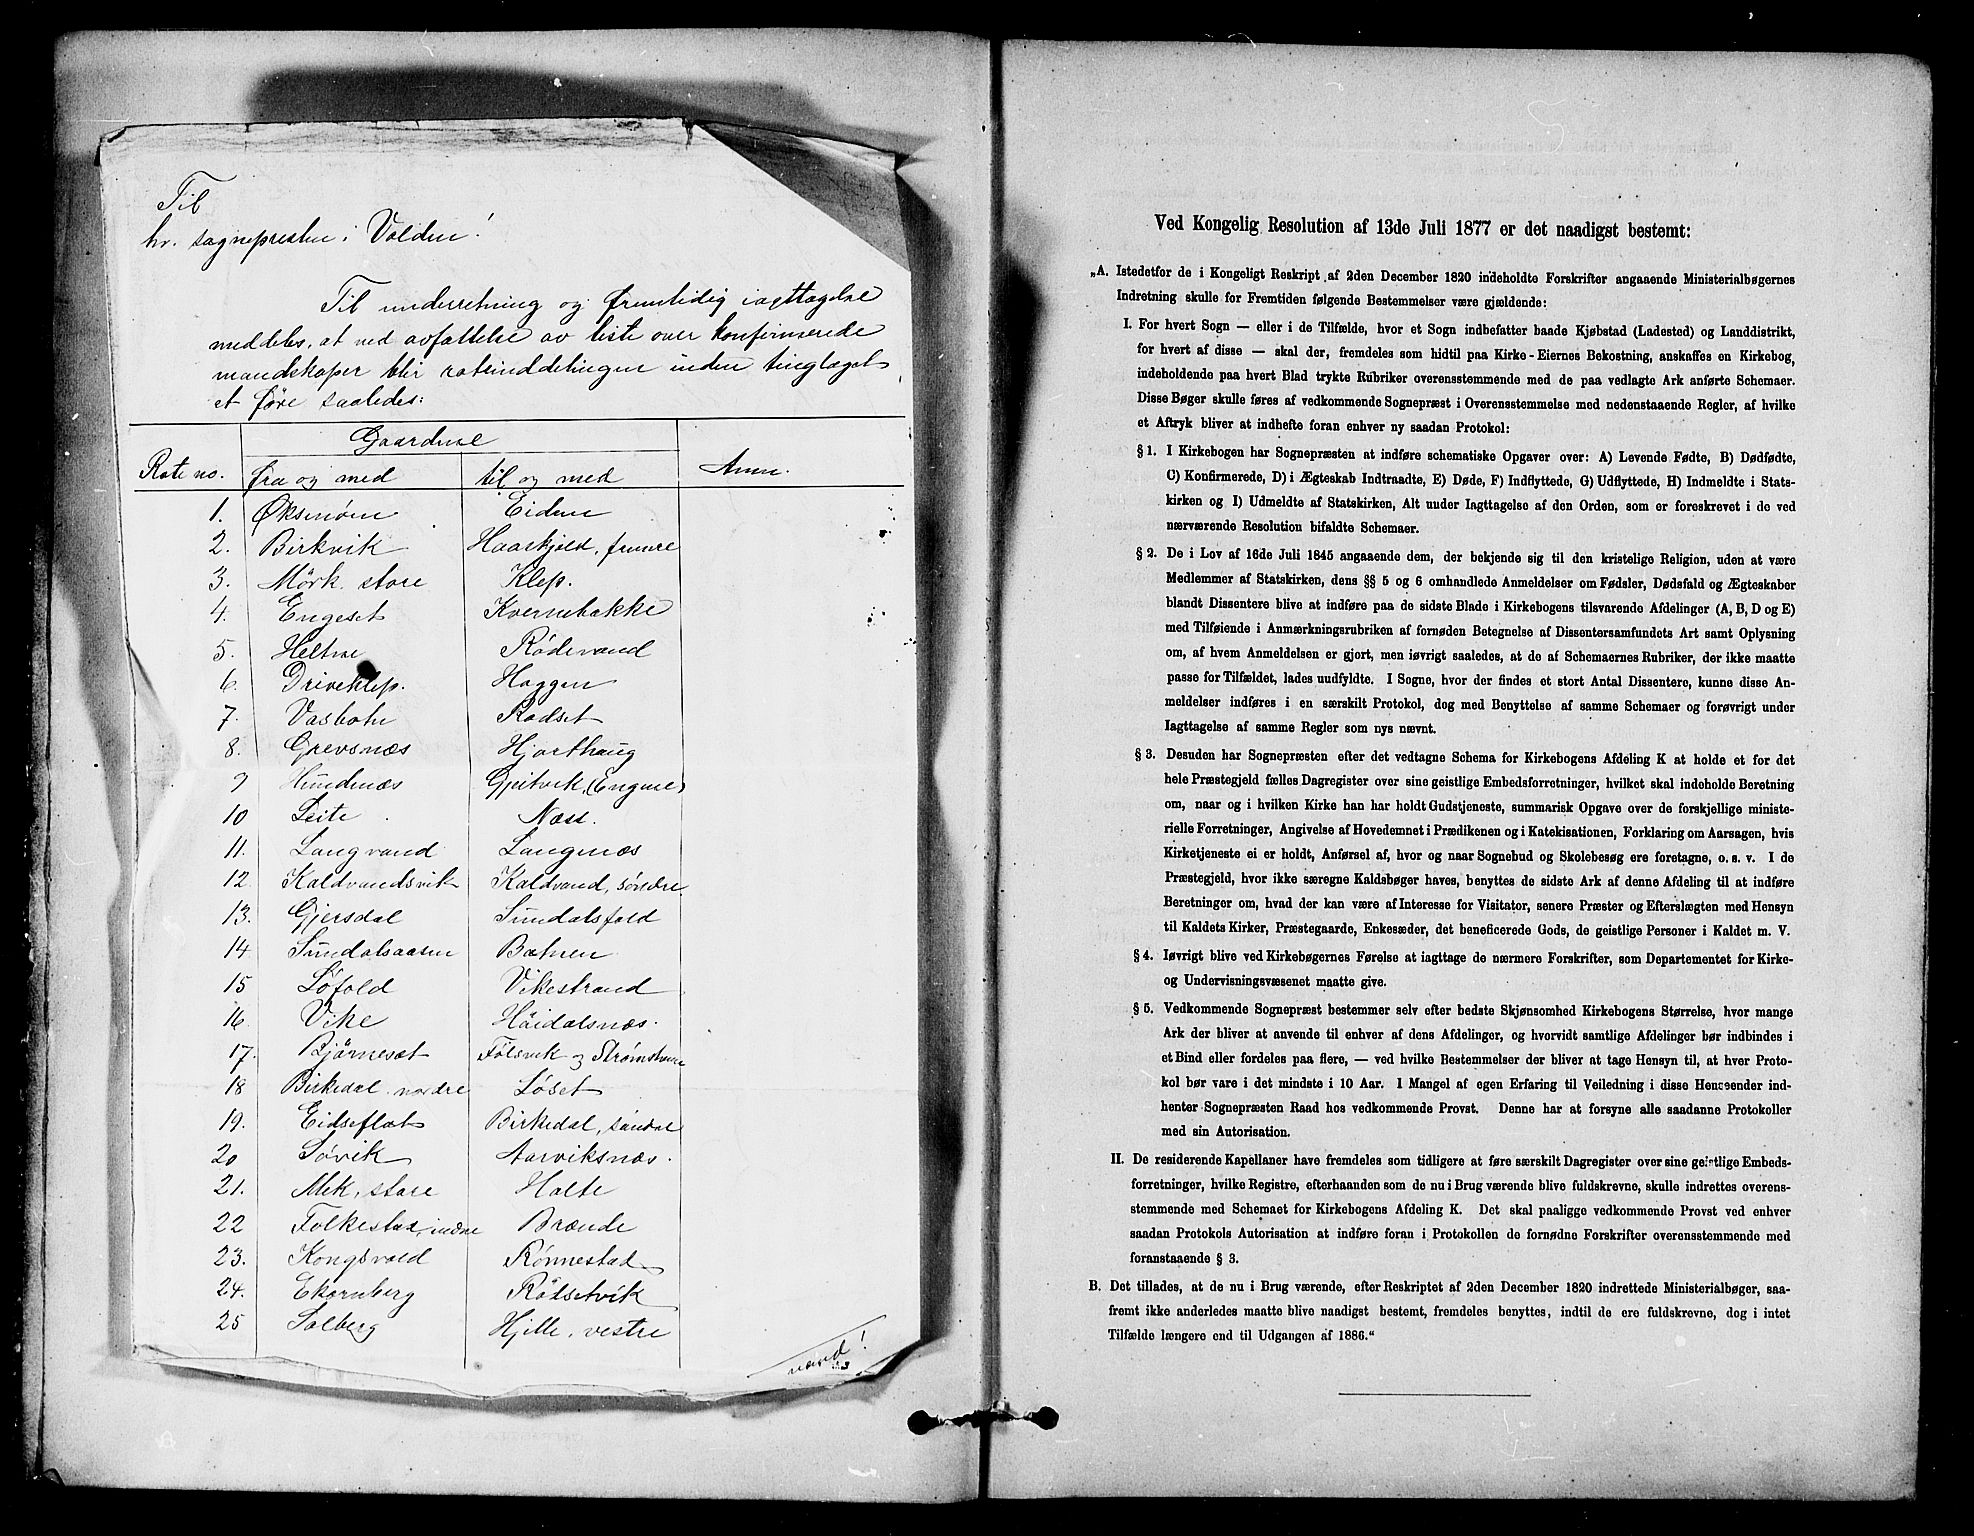 Til
hr. sognepresten i Volden!
Til underretning og fremtidig iagttagelse
meddeles, at ved avfattelse av liste over konfirmerede
mandskaper blir roteinddelingen inden tinglaget
at føre saaledes:
Gaardene
Rote no. fra og med til og med Anm.
1. Øksenøen Eidene
2. Birkvik Haaskjold, fremre
3. Mörk, store Klep.
4. Engeset Kvernebakke
5. Heltne Rødevand
6. Driveklep. Haggen
7. Vasbotn Rodset
8. Grevsnæs Hjorthaug
9 Hundenæs Gjeitvik, (Engene)
10 Leite Næss.
11. Langvand Langenæs
12. Kaldvandsvik Kaldvand, søndre
13. Gjersdal Sundalsfold
14 Sundalsaasen Botnen
15 Løfold Vikestrand
16 Vike Höidalsnæs.
17. Bjørneset Fölsvik og Strømshavn
18 Birkedal nordre Løset
19. Eidseflot Birkedal, søndre
20 Søvik Aarviksnæs.
21. Mek, store Holte
22 Folkestad, indre Brænde
23. Kongsvold Rønnestad
24. Ekornberg Rödsetvik
25 Solberg Hjelle, vestre
vend!
Ved Kongelig Resolution af 13de Juli 1877 er det naadigst bestemt:
„A. Istedetfor de i Kongeligt Reskript af 2den December 1820 indeholdte Forskrifter angaaende Ministerialbøgernes
Indretning skulle for Fremtiden følgende Bestemmelser være gjældende:
I. For hvert Sogn — eller i de Tilfælde, hvor et Sogn indbefatter baade Kjøbstad (Ladested) og Landdistrikt,
for hvert af disse — skal der, fremdeles som hidtil paa Kirke-Eiernes Bekostning, anskaffes en Kirkebog,
indeholdende paa hvert Blad trykte Rubriker overensstemmende med de paa vedlagte Ark anførte Schemaer.
Disse Bøger skulle føres af vedkommende Sognepræst i Overensstemmelse med nedenstaaende Regler, af hvilke
et Aftryk bliver at indhefte foran enhver ny saadan Protokol:
§ 1. I Kirkebogen har Sognepræsten at indføre schematiske Opgaver over: A) Levende Fødte, B) Dødfødte,
C) Konfirmerede, D) i Ægteskab Indtraadte, E) Døde, F) Indflyttede, G) Udflyttede, H) Indmeldte i Stats-
kirken og I) Udmeldte af Statskirken, Alt under Iagttagelse af den Orden, som er foreskrevet i de ved
nærværende Resolution bifaldte Schemaer.
§ 2. De i Lov af 16de Juli 1845 angaaende dem, der bekjende sig til den kristelige Religion, uden at være
Medlemmer af Statskirken, dens §§ 5 og 6 omhandlede Anmeldelser om Fødsler, Dødsfald og Ægteskaber
blandt Dissentere blive at indføre paa de sidste Blade i Kirkebogens tilsvarende Afdelinger (A, B, D og E)
med Tilføiende i Anmærkningsrubriken af fornøden Betegnelse af Dissentersamfundets Art samt Oplysning
om, af hvem Anmeldelsen er gjort, men iøvrigt saaledes, at de af Schemaernes Rubriker, der ikke maatte
passe for Tilfældet, lades uudfyldte. I Sogne, hvor der findes et stort Antal Dissentere, kunne disse An-
meldelser indføres i en særskilt Protokol, dog med Benyttelse af samme Schemaer og forøvrigt under
Iagttagelse af samme Regler som nys nævnt.
§ 3. Desuden har Sognepræsten efter det vedtagne Schema for Kirkebogens Afdeling K at holde et for det
hele Præstegjeld fælles Dagregister over sine geistlige Embedsforretninger, hvilket skal indeholde Beretning
om, naar og i hvilken Kirke han har holdt Gudstjeneste, summarisk Opgave over de forskjellige ministe-
rielle Forretninger, Angivelse af Hovedemnet i Prædikenen og i Katekisationen, Forklaring om Aarsagen, hvis
Kirketjeneste ei er holdt, Anførsel af, hvor og naar Sognebud og Skolebesøg ere foretagne, o. s. v. I de
Præstegjeld, hvor ikke særegne Kaldsbøger haves, benyttes de sidste Ark af denne Afdeling til at indføre
Beretninger om, hvad der kan være af Interesse for Visitator, senere Præster og Efterslægten med Hensyn
til Kaldets Kirker, Præstegaarde, Enkesæder, det beneficerede Gods, de geistlige Personer i Kaldet m. V.
§ 4. Iøvrigt blive ved Kirkebøgernes Førelse at iagttage de nærmere Forskrifter, som Departementet for Kirke-
og Undervisningsvæsenet maatte give.
§ 5. Vedkommende Sognepræst bestemmer selv efter bedste Skjønsomhed Kirkebogens Størrelse, hvor mange
Ark der bliver at anvende til enhver af dens Afdelinger, og hvorvidt samtlige Afdelinger bør indbindes i
et Bind eller fordeles paa flere, — ved hvilke Bestemmelser der bliver at tage Hensyn til, at hver Proto-
kol bør vare i det mindste i 10 Aar. I Mangel af egen Erfaring til Veiledning i disse Henseender ind-
henter Sognepræsten Raad hos vedkommende Provst. Denne har at forsyne alle saadanne Protokoller
med sin Autorisation.
II. De residerende Kapellaner have fremdeles som tidligere at føre særskilt Dagregister over sine geistlige Embeds-
forretninger, hvilke Registre, efterhaanden som de nu i Brug værende blive fuldskrevne, skulle indrettes overens-
stemmende med Schemaet for Kirkebogens Afdeling K. Det skal paaligge vedkommende Provst ved enhver
saadan Protokols Autorisation at indføre foran i Protokollen de fornødne Forskrifter overensstemmende med
foranstaaende § 3.
B. Det tillades, at de nu i Brug værende, efter Reskriptet af 2den December 1820 indrettede Ministerialbøger, saa-
fremt ikke anderledes maatte blive naadigst bestemt, fremdeles benyttes, indtil de ere fuldskrevne, dog i intet
Tilfælde længere end til Udgangen af 1886.“